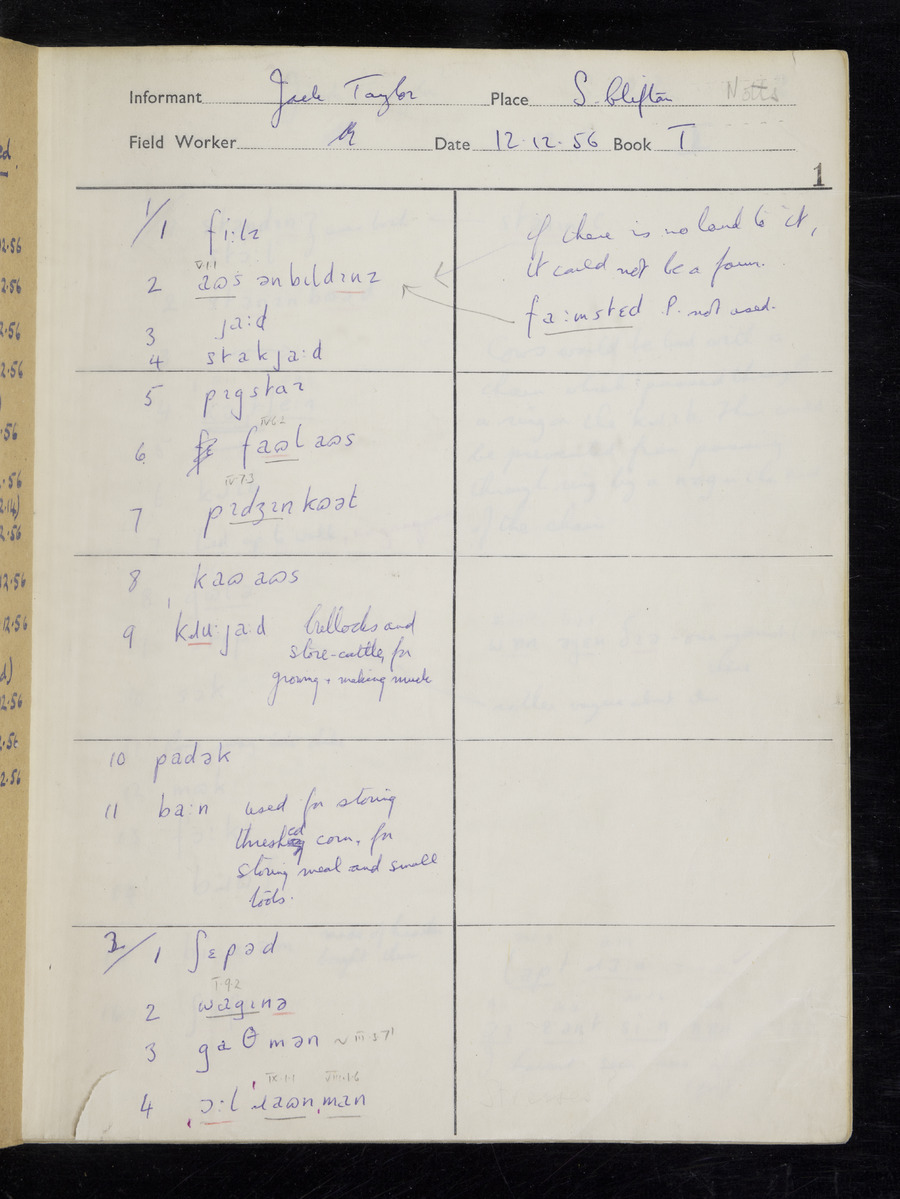 Informant Jack Taylor Place S. Clifton Notts
Field Worker Date 12.12.56 Book T
1
1/1 fiːlz
if there is no land to it,
it could not be a farm.
V.1.1
2 aʊs ənbɪldɪnz
faːmstɛd P. not used.
3 jaːd
4 stakjaːd
5 pɪgstaɪ
IV.6.2
6 faʊl aʊs
IV.7.3
7 pɪdʒɪnkɒət
8 kaʊ aʊs
9 kɹuːjaːd bullocks and
store-cattle, for
growing + making muck
10 padək
11 baːn used for storing
threshed corn, for
storing meal and small
tools.
2/1 ʃɛpəd
I.9.2
2 wagɪnə
3 gaθmən ~ VIII.5.1
IX.1.1 VIII.1.6
4 ɔːl ɹaʊn man